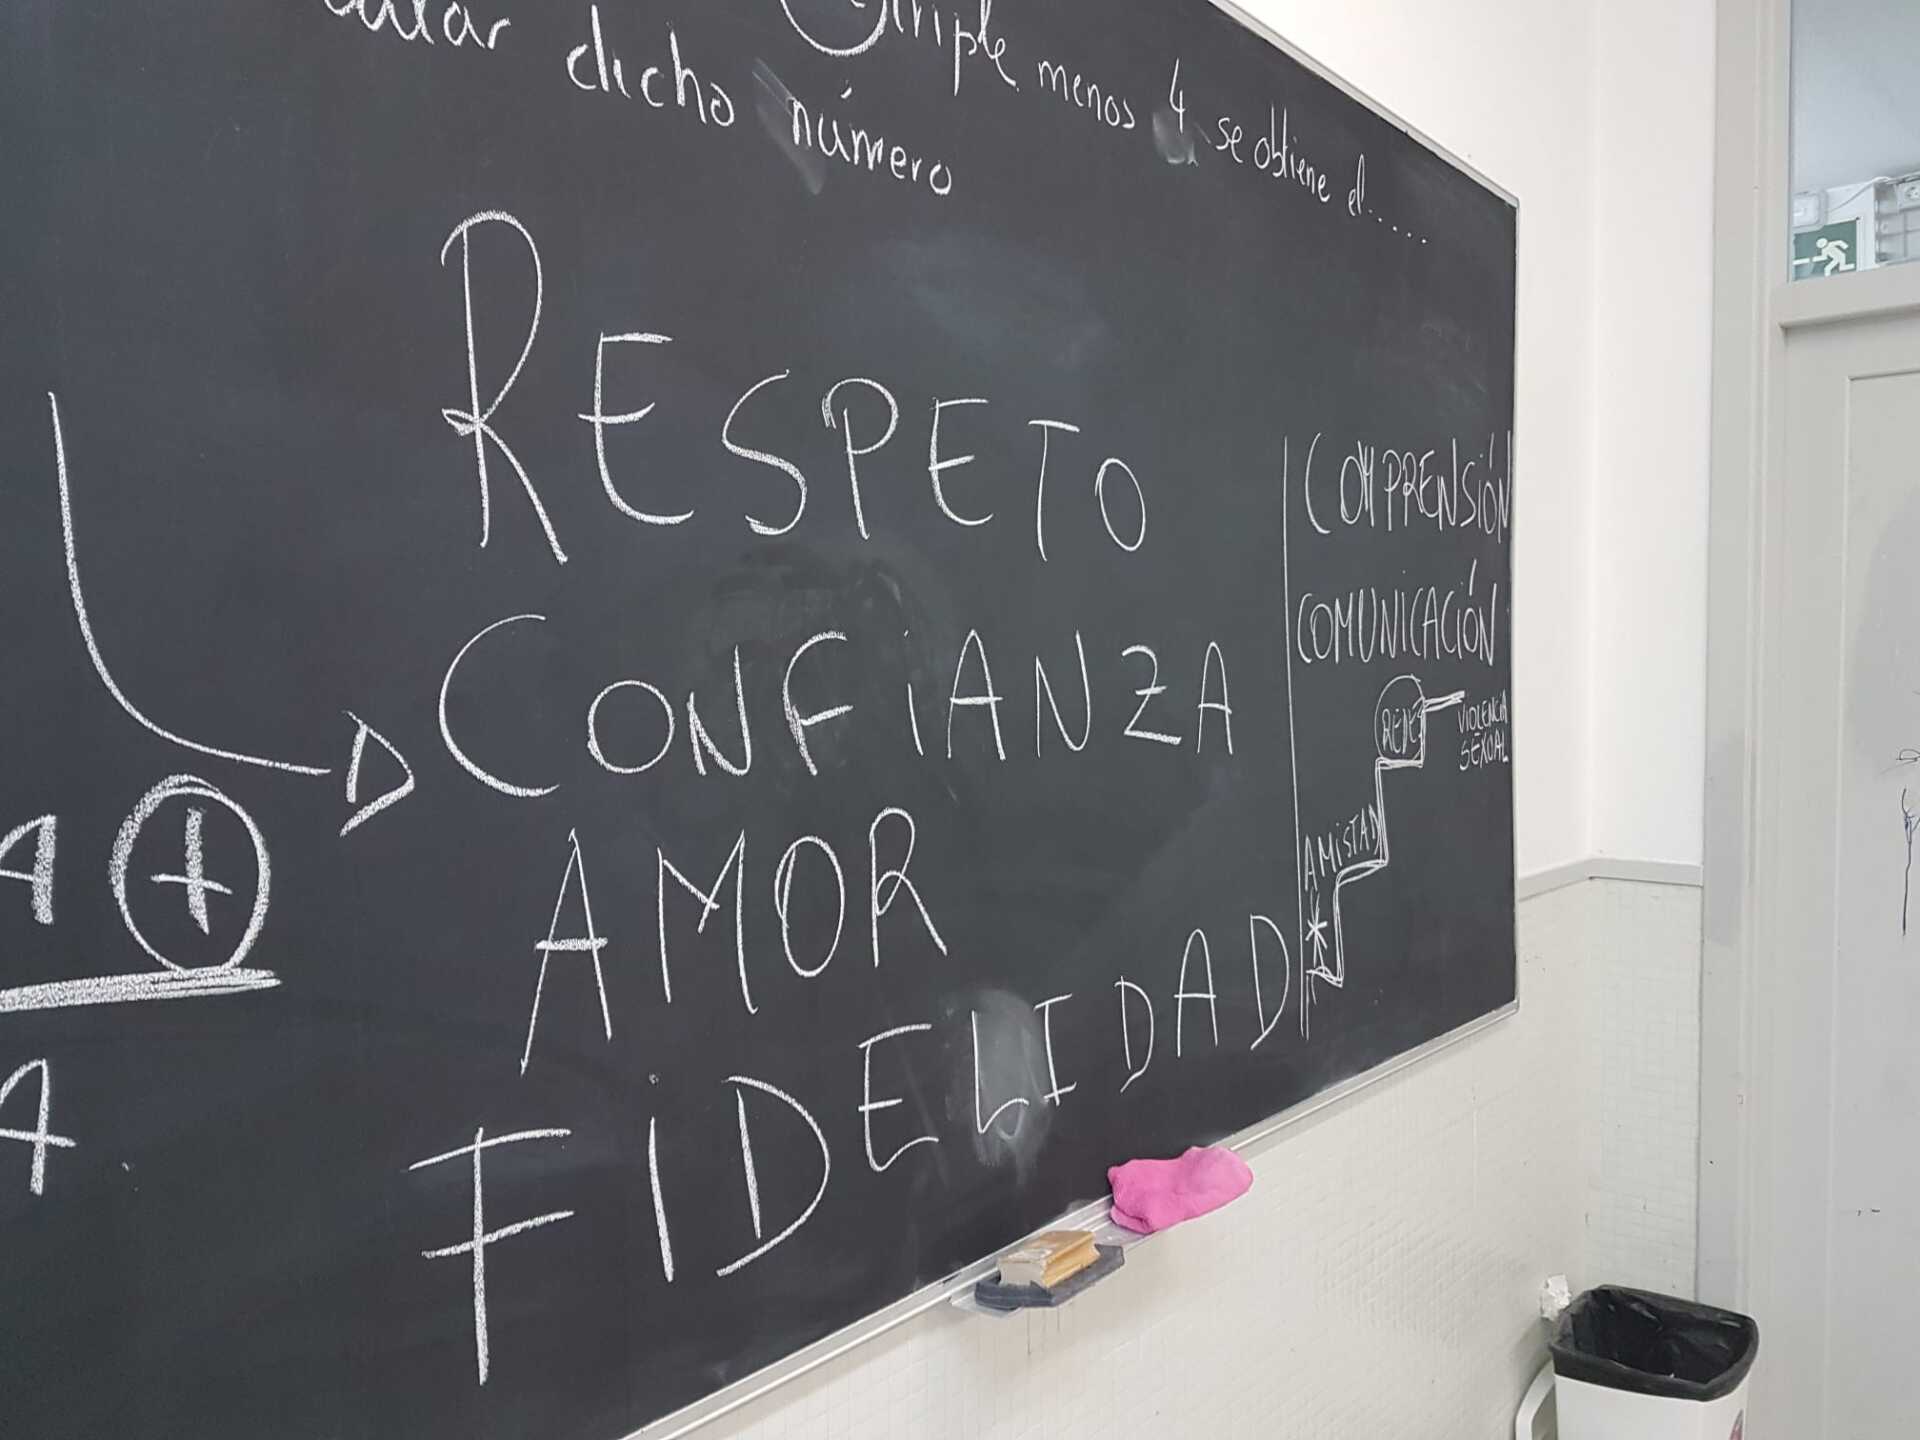 menos 4 se obtiene el.....
dicho número
RESPETO
CONFIANZA
AMOR
FIDELIDAD
COMPRENSIÓN
COMUNICACIÓN
REDES
VIOLENCIA
SEXUAL
AMISTAD
*
A +
A